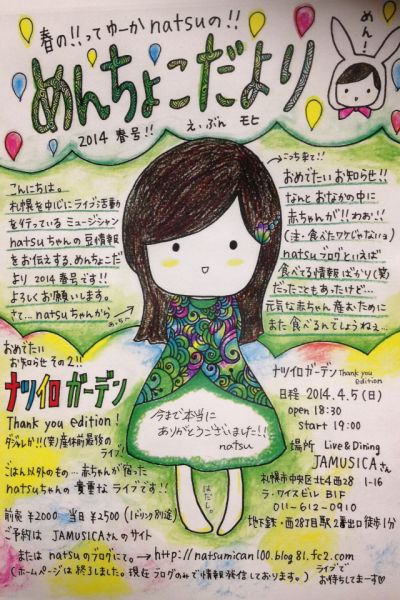 春の!!ってゆーかnatsuの!!
めん!
めんちょこだより
2014 春号!!
え、ぶん モヒ
こんにちは。
札幌を中心にライブ活動
を行っているミュージシャン
natsuちゃんの豆情報
をお伝えする、めんちょこだ
より 2014春号です!!
よろしくお願いしまう。
さて…natsuちゃんから
こっち来て!!
おめでたいお知らせ!!
なんとおなかの中に
赤ちゃんが!!わぉ!!
(注・食べたワケじゃないョ)
natsuブログといえば
食べてる情報ばかり(笑)
だったこともあったけど…
元気な赤ちゃん産むために
また食べるんでしょうねぇ…
おめでたい
お知らせ その2!!
ナツイロ ガーデン
Thank you edition!
ダジャレか!!(笑)産休前最後の
ライブ!
ごはん以外のもの…赤ちゃんが宿った
natsuちゃんの貴重なライブです!!
前売 ¥2000 当日 ¥2500 (1ドリンク別途)
ご予約は JAMUSICAさんのサイト
または natsuのブログにて。→http://natsumican100.blog81.fc2.com
(ホームページは終了しました。現在ブログのみで情報発信しております。)
今まで本当に
ありがとうございました!!
natsu
はだし。
ナツイロガーデン Thank you
edition
日程 2014.4.5(日)
open 18:30
start 19:00
場所 Live&Dining
JAMUSICAさん
札幌市中央区北4西28 1-16
ラ・ワイズビル B1F
011-612-0910
地下鉄・西28丁目駅2番出口徒歩1分
ライブで
お待ちしてまーす♡